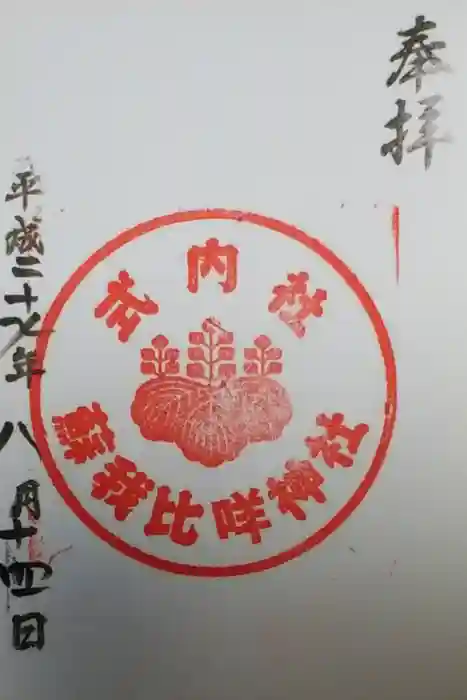 奉拝
式内社
蘇我比咩神社
平成二十七年八月十四日